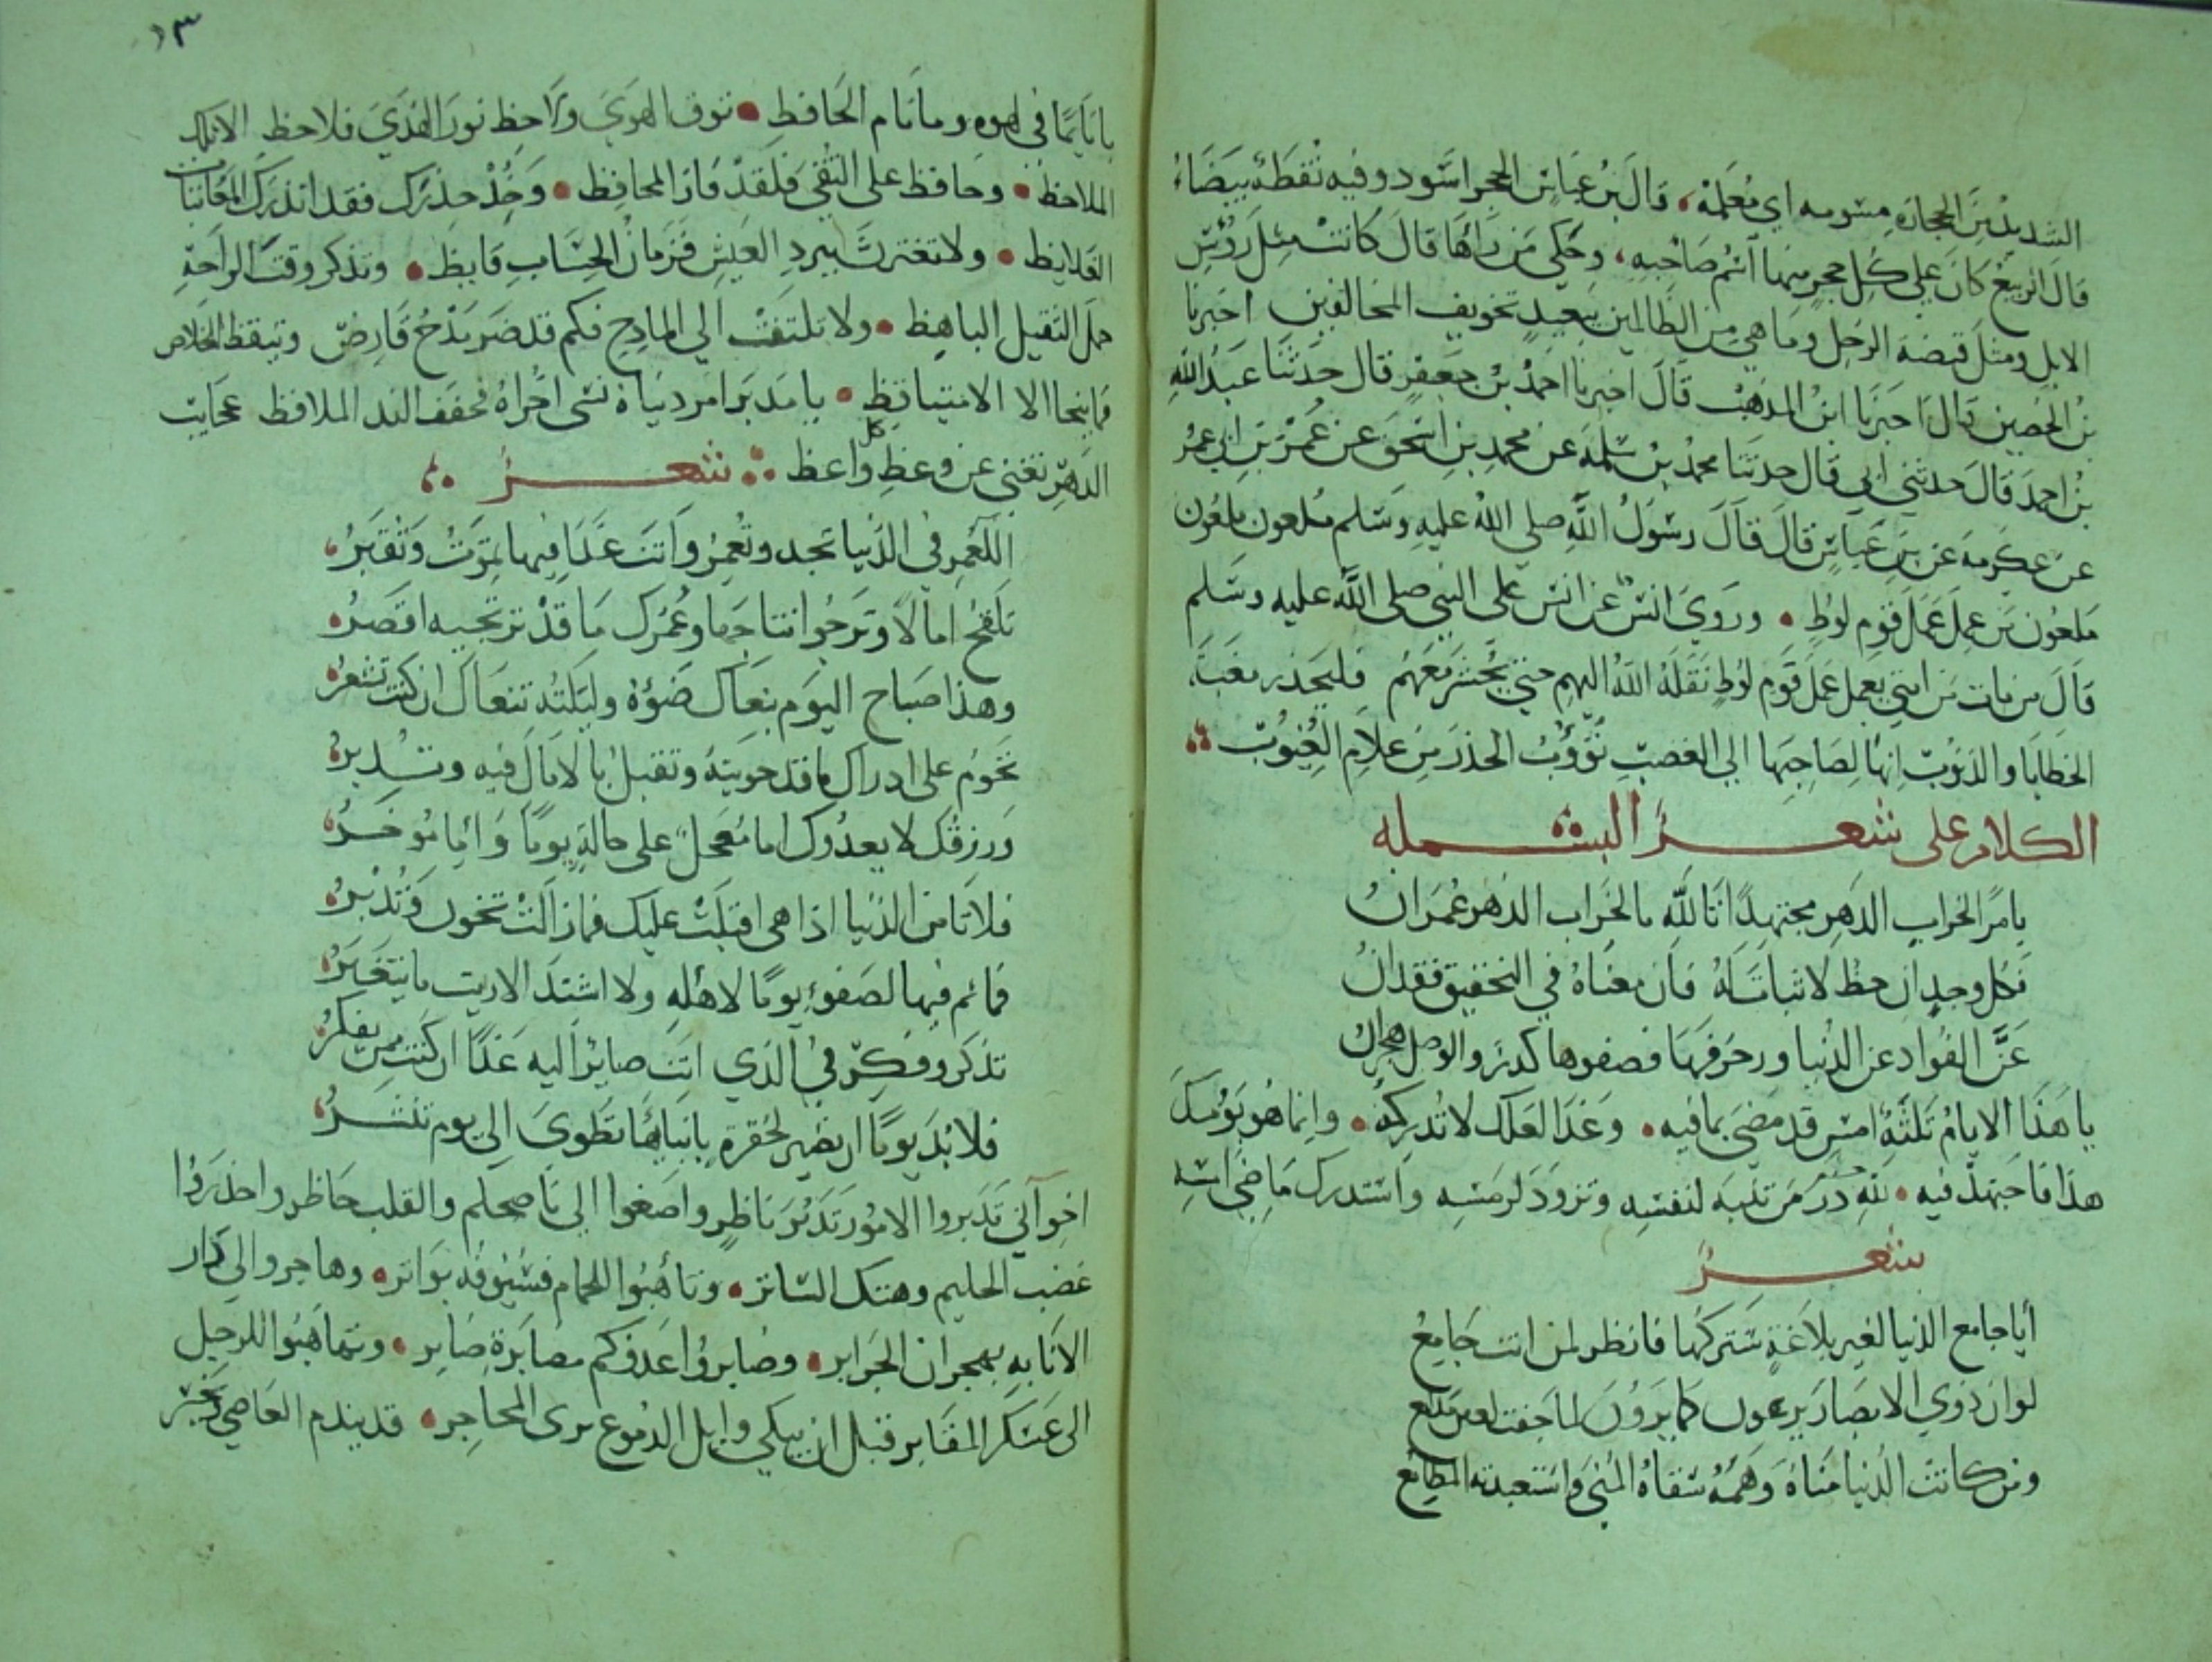 الشديد من الحجاره مسومه اي معلمة، قال بن عباس الحجر اسود وفيه نقطة بيضاء
قال الربيع كان على كل حجر منها اسم صاحبه، وحكي من راها قال كانت مثل رؤس
الابل ومثل قبضة الرجل وما هي من الظالمين ببعيد تخويف المخالفين اخبرنا
بن الحصين قال اخبرنا ابن المذهب قال اخبرنا احمد بن جعفر قال حدثنا عبد الله
بن احمد قال حدثني ابي قال حدثنا محمد بن سلمة عن محمد بن اسحق عن عمرو بن ابي عمر
عن عكرمة عن بن عباس قال قال رسول الله صلى الله عليه وسلم ملعون ملعون
ملعون من عمل عمل قوم لوط • وروي انس عن انس على النبي صلى الله عليه وسلم
قال من مات من امتي بعمل عمل قوم لوط نقله الله اليهم حتي يحشر معهم فليحذر مغبة
الخطايا والذنوب انها لصاحبها الي الغضب تؤوب الحذر من علام الغيوب
الكلام على شعر البسمله
يامر الخراب الدهر مجتهدا تالله مالخراب الدهر عمران
فكل وجدان حظ لا ثبات له فان معناه في التحقيق فقدان
عن الفواد عن الدنيا وزخرفها فصفوها كدر والوصل هجران
يا هذا الايام ثلثة امس قد مضي بما فيه • وغدا لعلك لا تدركه • وانما هو يومك
هذا فاجتهد فيه • لله در من تنبه لنفسه وتزود لرمسه واستدرك ما مضي امسه
شعر
أيا جامع الدنيا لغير بلاغة ستتركها فانظر لمن انت جامع
لو ان ذوي الابصار يرعون كما يرون لما جفت لعين مدامع
ومن كانت الدنيا مناه وهمه سقاه المنى واستعبدته المطامع
١٣
يا نايما في لهوه وما نام الحافظ • توق الهوي ولاحظ نور الهدي فلاحظ الا
الملاحظ • وحافظ على التقي فلقد فاز المحافظ • وخذ حذرك فقد انذرك
الغلايظ • ولا تغترن ببرد العيش فزمان الحساب قايظ • وتذكر وقت الراحة
حمل الثقيل الباهظ • ولا تلتفت الي المادح فكم قد ضر مدح قارض وتيقظ للخلاص
فما نجا الا الاستيقاظ • يا مدبرا امر دنياه نسي اخراه فخفف الند الملافظ عجايب
الدهر تغني عن وعظ كل واعظ شعر
اللعمر في الدنيا تجد وتعمر وانت غدا فيها تموت وتقبر
تلقح امالا وترجو انتاجها وعمرك ما قد ترتجيه اقصر
وهذا صباح اليوم ينعاك ضوؤه وليلته تنعاك ان كنت تشعر
تحوم على ادراك ما قد حويته وتقبل بالامال فيه وتدبر
ورزقك لا يعدوك اما معجل على حالة يوما واما موخر
فلا تامن الدنيا اذا هي اقبلت عليك فما زالت تخون وتدبر
فما تم فيها لصفو يوما لاهله ولا اشتد الا ريث ما يتغير
تذكر وفكر في الذي انت صاير اليه غدا ان كنت ممن يفكر
فلا بد يوما ان تصير لحفرة باثنايها تطوي الي يوم تنشر
اخواني تدبروا الامور تدبر ناظر واصغوا الي ناصحكم والقلب حاظر واحذروا
غضب الحليم وهتك الساتر • وتاهبوا للحمام فسيوفه بواتر • وهاجروا الي دار
الانابه بهجران الجراير • وصابروا عدوكم مصابرة صابر • وتهاهبوا للرحيل
الى عسكر المقابر قبل ان يبكي وابل الدموع يرى المحاجر • قد يندم العاصي